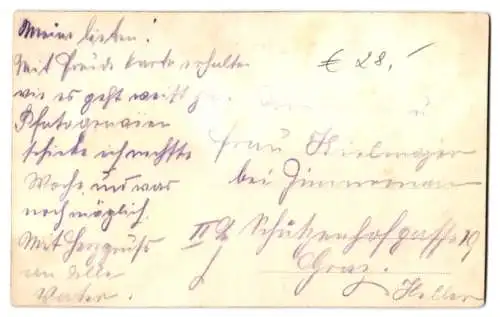 Meine lieben!
Mit Freude karte erhalten
wie es geht weist
Photograviien
schicke ich nechste
Woche, uns was
noch möglich.
Mit Herzgruß
an Alle
Vater.
€ 28,-
u
Frau Kielmayer
bei Zimmerman
III Schützenhofgasse 19
Graz.
Heller